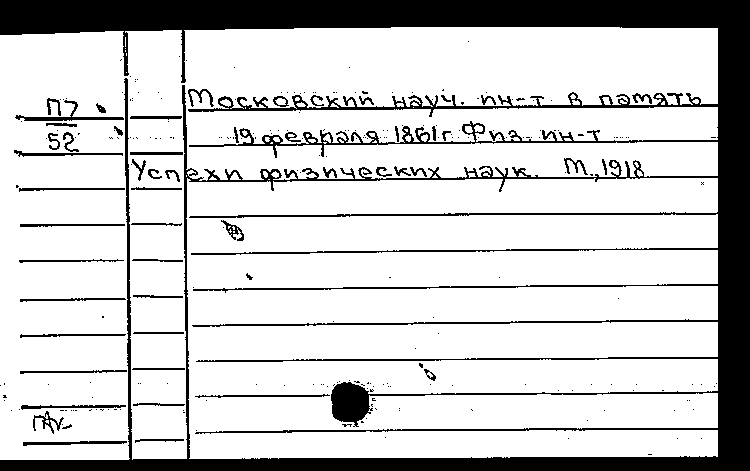 П7
52
Московский науч. ин-т в память
19 февраля 1861 г. Физ. ин-т
Успехи физических наук. М., 1918